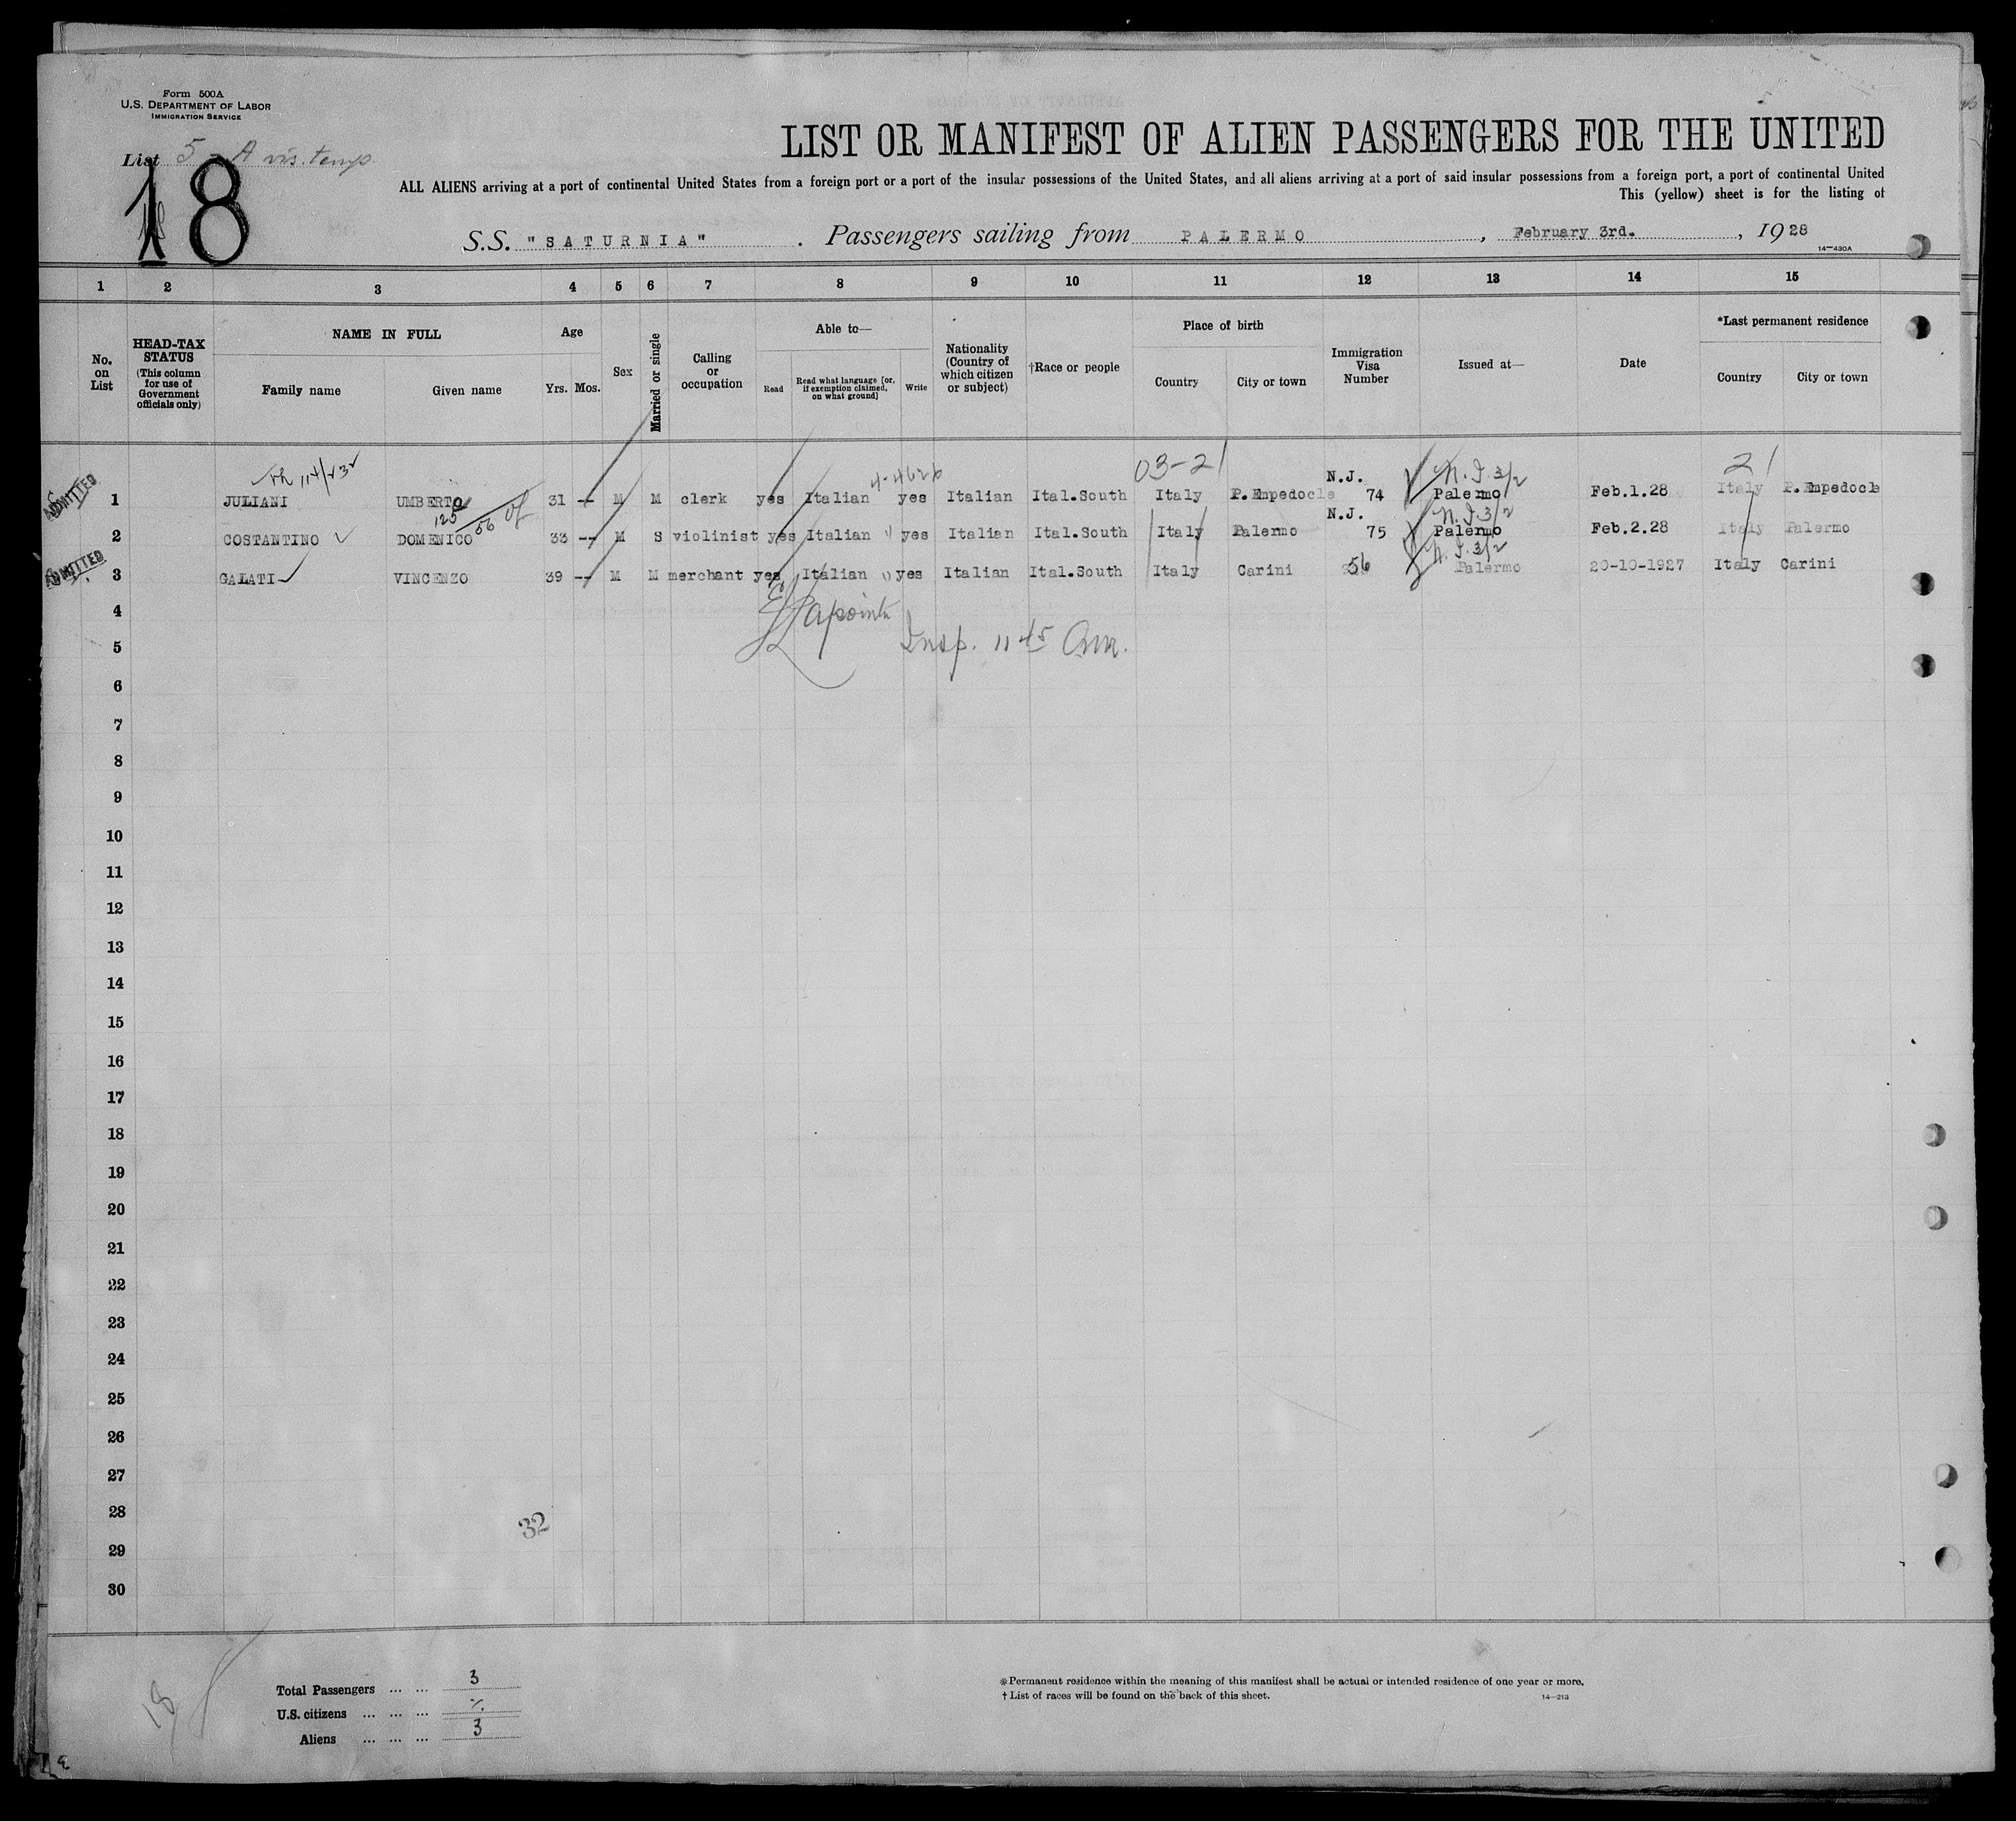 Form 500A
U.S. DEPARTMENT OF LABOR
IMMIGRATION SERVICE
List 5 - A vis. temp.
18
LIST OR MANIFEST OF ALIEN PASSENGERS FOR THE UNITED
ALL ALIENS arriving at a port of continental United States from a foreign port or a port of the insular possessions of the United States, and all aliens arriving at a port of said insular possessions from a foreign port, a port of continental United
This (yellow) sheet is for the listing of
S.S. "SATURNIA". Passengers sailing from PALERMO, February 3rd., 1928
14—430A
1 2 3 4 5 6 7 8 9 10 11 12 13 14 15
No. on List
HEAD-TAX STATUS (This column for use of Government officials only)
NAME IN FULL
Family name Given name
Age
Yrs. Mos.
Sex
Married or single
Calling or occupation
Able to—
Read
Read what language [or, if exemption claimed, on what ground]
Write
Nationality (Country of which citizen or subject)
†Race or people
Place of birth
Country City or town
Immigration Visa Number
Issued at—
Date
*Last permanent residence
Country City or town
4-4626 03-21 21
ADMITTED
N.J. N.J. 3/2
1 JULIANI UMBERTO 31 -- M M clerk yes Italian yes Italian Ital.South Italy P.Empedocle 74 Palermo Feb.1.28 Italy P.Empedocle
125 56
N.J. N.J. 3/2
2 COSTANTINO DOMENICO 33 -- M S violinist yes Italian yes Italian Ital.South Italy Palermo 75 Palermo Feb.2.28 Italy Palermo
ADMITTED
N.J. 3/2
3 GALATI VINCENZO 39 -- M M merchant yes Italian yes Italian Ital.South Italy Carini 56 Palermo 20-10-1927 Italy Carini
4
Lapointe
5 Insp. 11 45 Am.
6
7
8
9
10
11
12
13
14
15
16
17
18
19
20
21
22
23
24
25
26
27
28
32
29
30
18
Total Passengers ... ... 3
U.S. citizens ... ... ... %.
Aliens ... ... ... 3
*Permanent residence within the meaning of this manifest shall be actual or intended residence of one year or more.
†List of races will be found on the back of this sheet.
14—213